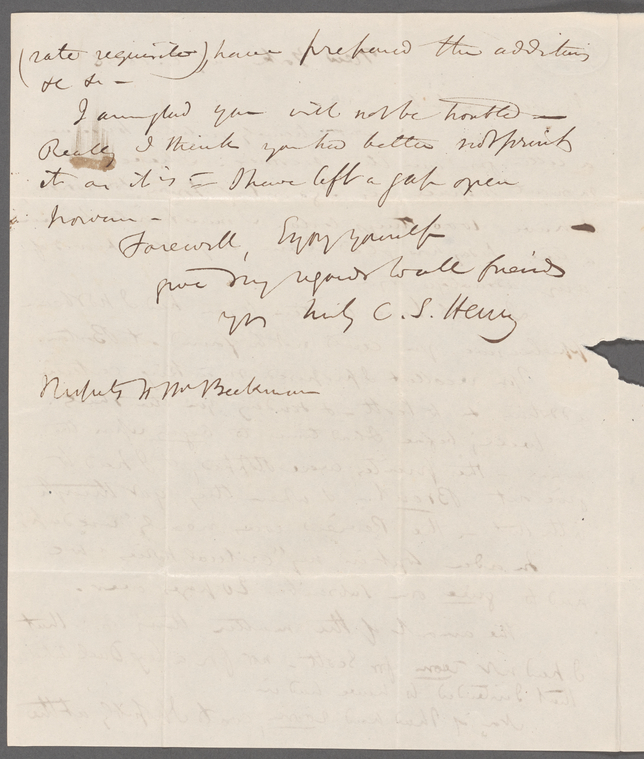 (rate requisite), have prepared the additions
&c &c -
I am glad you will not be troubled -
Really I think you had better not print
it as it is = I have left a gap open
however -
Farewell, Enjoy yourself
give my regards to all friends
yrs truly C. S. Henry
Respects to Mr Beekman